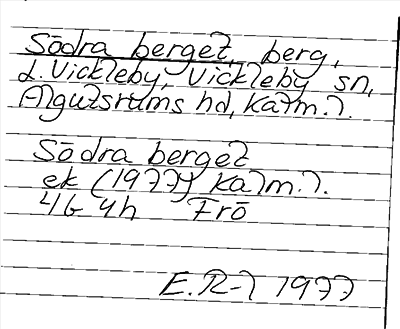 Södra berget, berg,
L. Vickleby, Vickleby sn,
Algutsrums hd, Kalm. l.
Södra berget
ek (1977) Kalm. l.
4G 4h Frö
E.R-l 1977